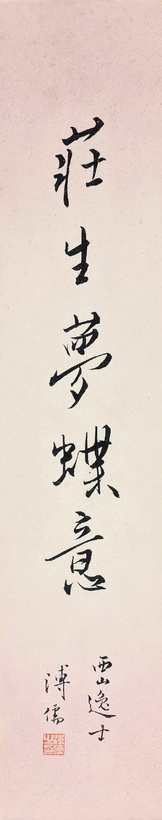 莊生夢蝶意
西山逸士
溥儒